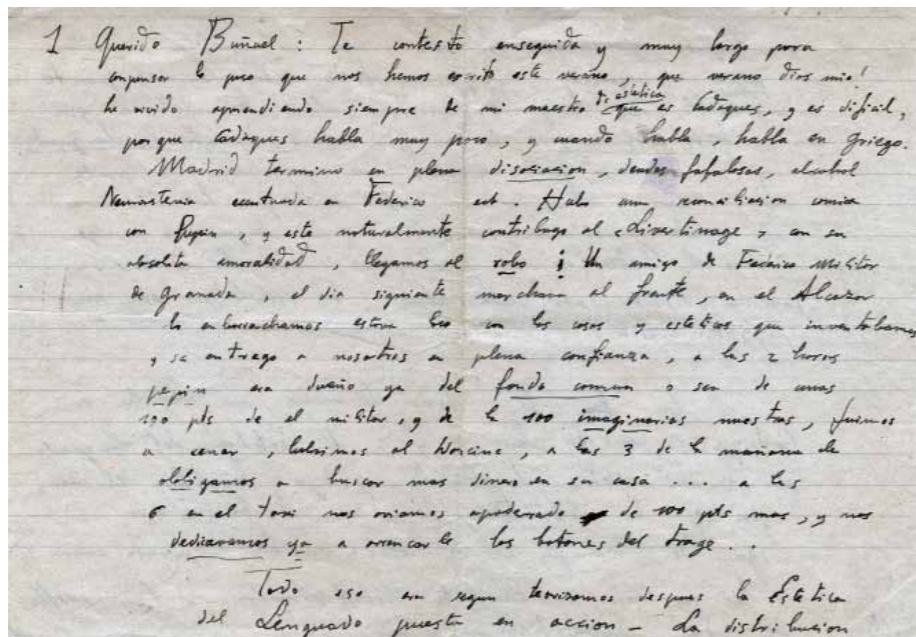 1 Querido Buñuel: Te contesto enseguida y muy largo para
conpensar lo poco que nos hemos escrito este verano, que verano dios mio!
he vivido aprendiendo siempre de mi maestro de estetica que es Cadaques, y es dificil,
porque Cadaques habla muy poco, y cuando habla, habla en griego.
Madrid termino en plena disociacion, deudas fafalosas, alcohol
Neurastenia acentuada en Federico ect. Hubo una reconciliacion comica
con Pepin, y este naturalmente contribuyo al «Livertinage» con su
absoluta amoralidad, llegamos al robo ¡ Un amigo de Federico militar
de Granada, el dia siguiente marchava al frente, en el Alcazar
lo enborrachamos estava loco con las cosas y esteticas que inventabamos
y se entrego a nosotros en plena confianza, a las 2 horas
pepin era dueño ya del fondo comun o sea de unas
100 pts de el militar, y de la 100 imaginarias nuestras, fuimos
a cenar, subimos al , a las 3 de la mañana le
obligamos a buscar mas dinero en su casa ... a las
6 en el taxi nos aviamos apoderado de 100 pts mas, y nos
dedicavamos ya a arrancarle los botones del trage . .
Todo eso era segun teorizamos despues la Estetica
del Lenguado puesta en accion – La distribucion